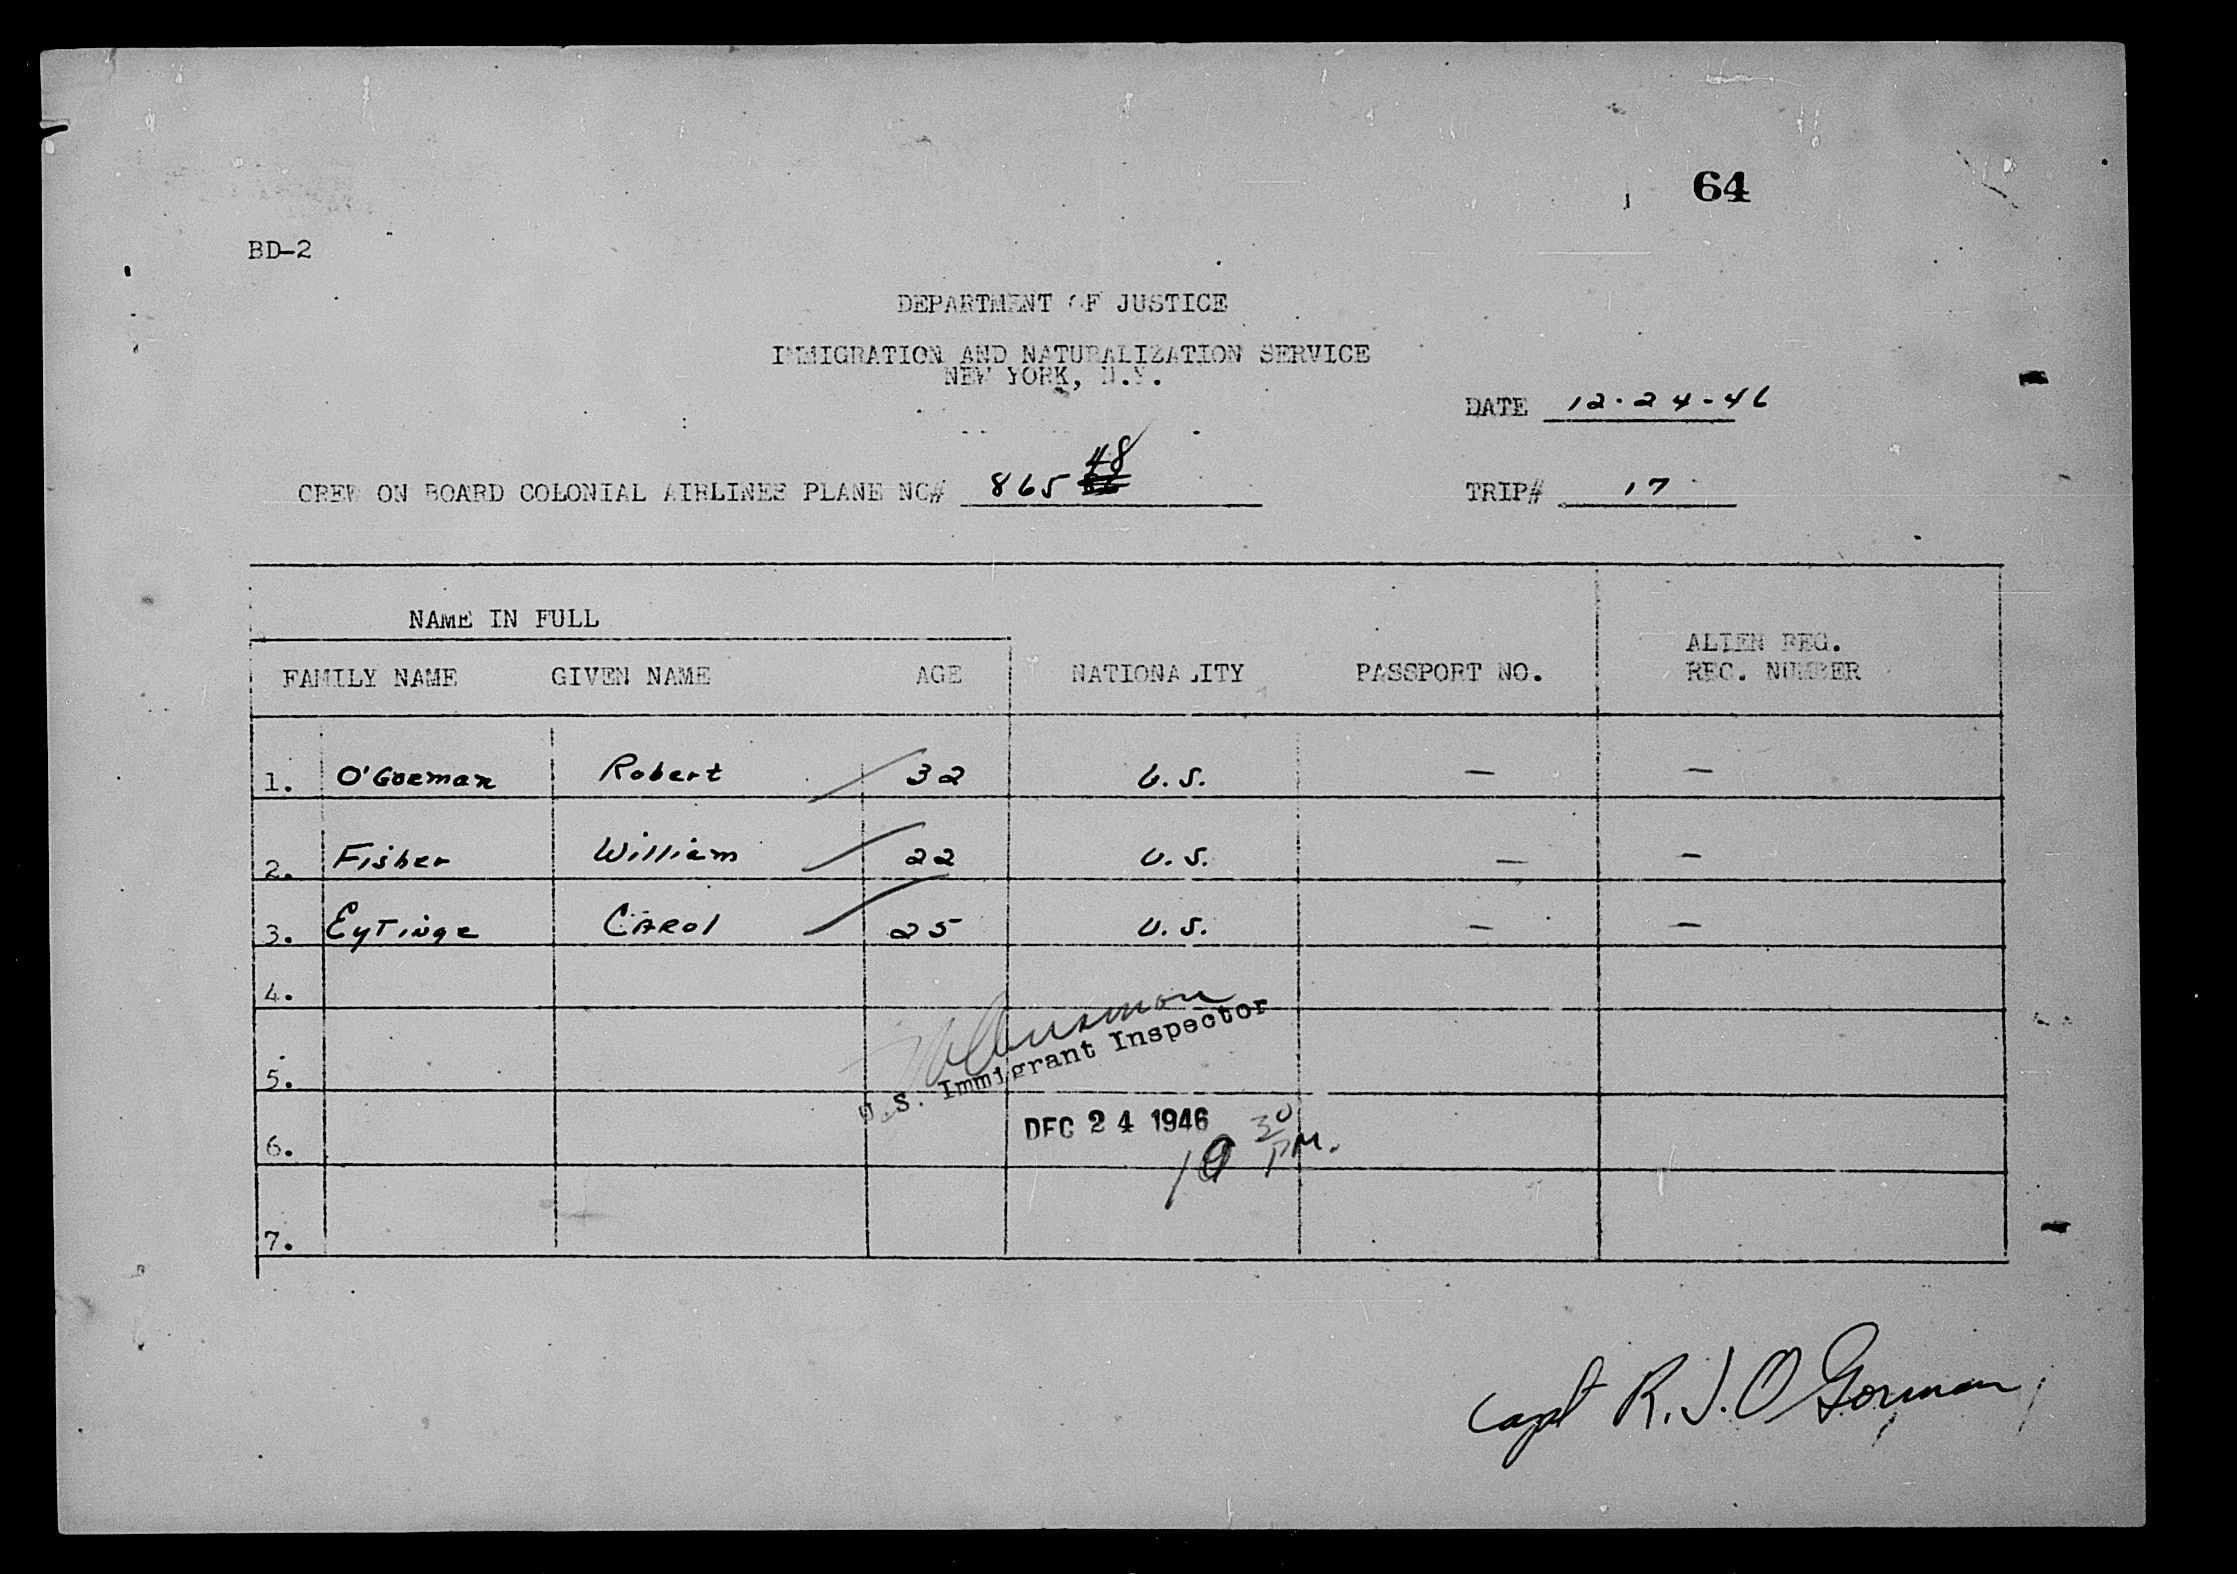 64
BD-2
DEPARTMENT OF JUSTICE
IMMIGRATION AND NATURALIZATION SERVICE
NEW YORK, N.Y.
DATE 12-24-46
CREW ON BOARD COLONIAL AIRLINES PLANE NO# 86548
TRIP# 17
NAME IN FULL
FAMILY NAME GIVEN NAME AGE NATIONALITY PASSPORT NO. ALIEN REG. REC. NUMBER
1. O'Gorman Robert 32 U.S. — —
2. Fisher William 22 U.S. — —
3. Eytinge Carol 25 U.S. — —
4.
U.S. Immigrant Inspector
5.
DEC 24 1946
6.
10 30 PM.
7.
Capt R. J. O Gorman